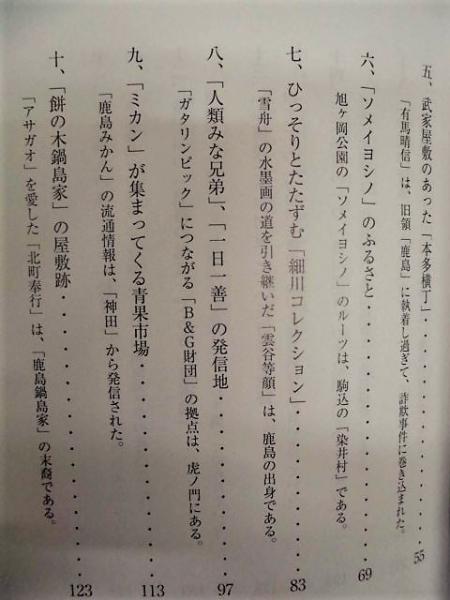 五、武家屋敷のあった「本多横丁」・・・・・・・・・・55
「有馬晴信」は、旧領「鹿島」に執着し過ぎて、詐欺事件に巻き込まれた。
六、「ソメイヨシノ」のふるさと・・・・・・・・・・・・69
旭ヶ岡公園の「ソメイヨシノ」のルーツは、駒込の「染井村」である。
七、ひっそりとたたずむ「細川コレクション」・・・・・・・・83
「雪舟」の水墨画の道を引き継いだ「雲谷等顔」は、鹿島の出身である。
八、「人類みな兄弟」、「一日一善」の発信地・・・・・・・・97
「ガタリンピック」につながる「B&G財団」の拠点は、虎ノ門にある。
九、「ミカン」が集まってくる青果市場・・・・・・・・・・113
「鹿島みかん」の流通情報は、「神田」から発信された。
十、「餅の木鍋島家」の屋敷跡・・・・・・・・・・・・123
「アサガオ」を愛した「北町奉行」は、「鹿島鍋島家」の末裔である。